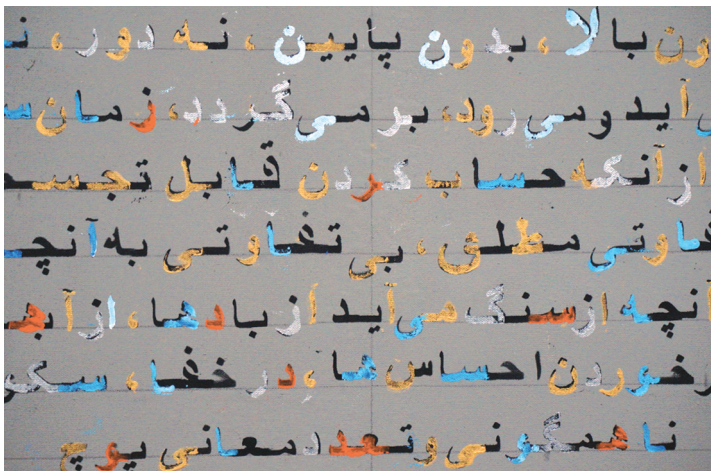 ون بالا، بدون پایین، نه دور، نـ
ـی آید ومی رود، بر می گردد، زمان سـ
از آنکه حساب کردن قابل تجسـ
ـفاوتی مطلق، بی تفاوتی به آنچـ
آنچه از سنگ می آید از بادها، از آبـ
ـرخوردن احساس ها، در خفا، سکو
ناهمگونی و تعدد معانی پوچ